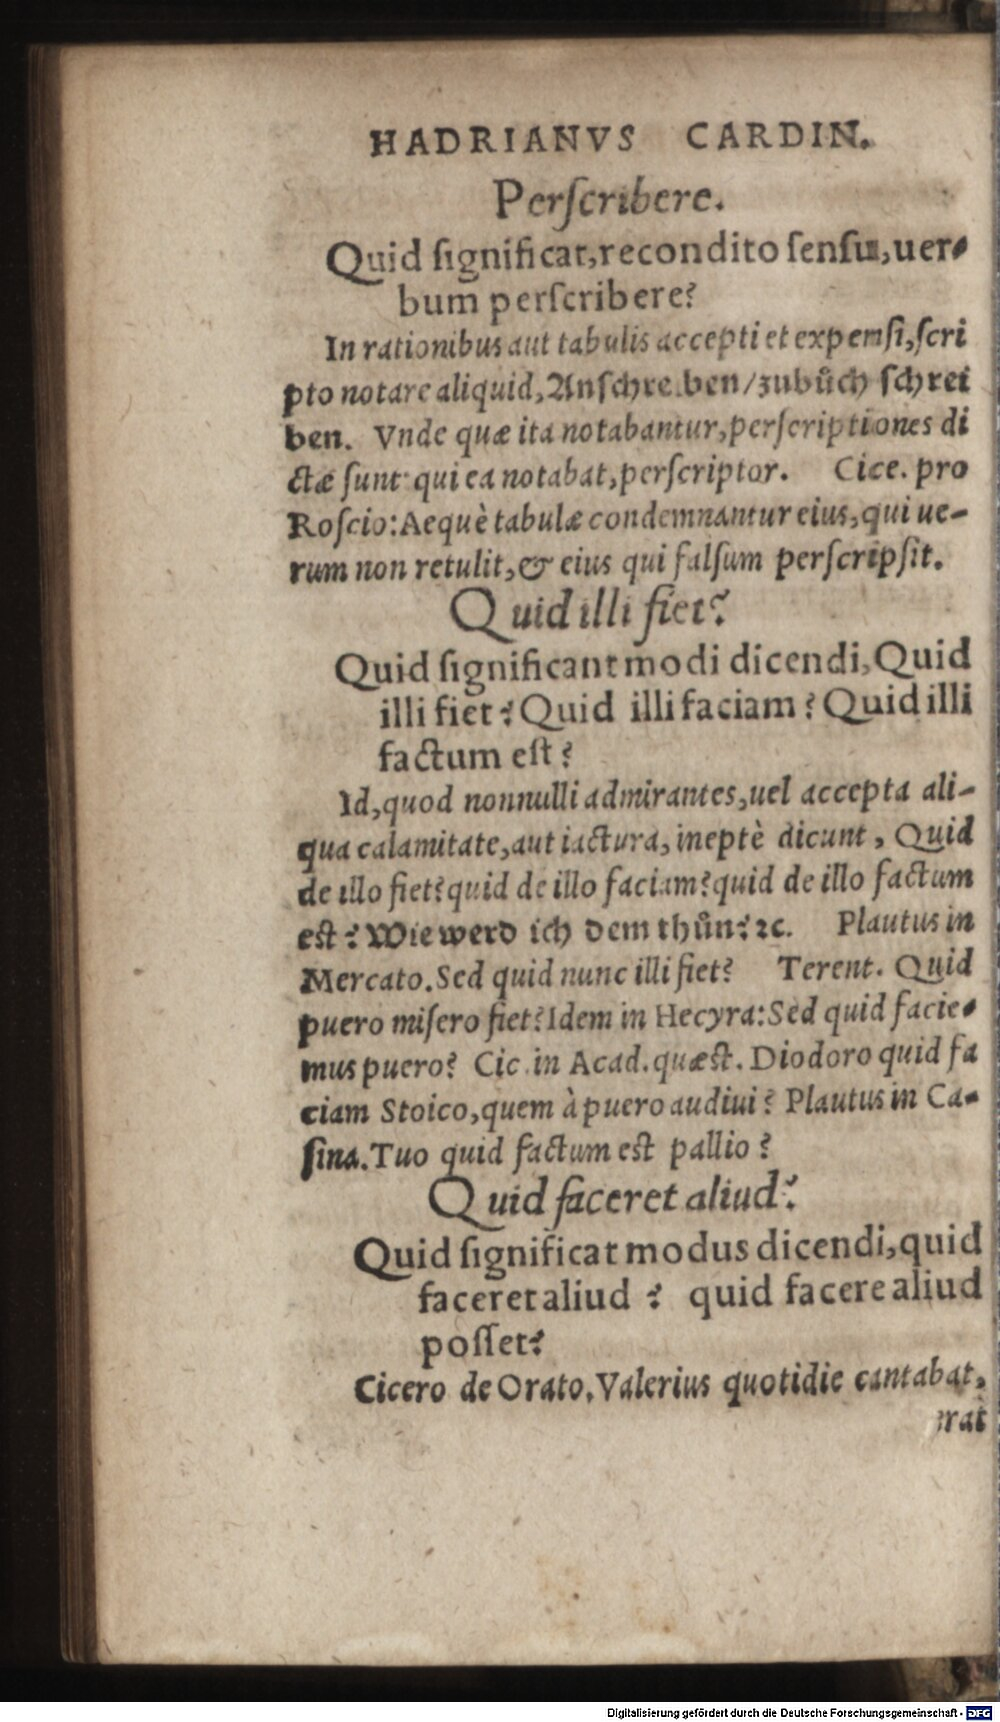 HADRIANVS CARDIN.
Perſcribere.
Quid ſignificat, recondito ſenſu, uer-
bum perſcribere?
In rationibus aut tabulis accepti et expenſi, ſcri
pto notare aliquid, Anſchreiben/zubůch ſchrei
ben. Vnde quæ ita notabantur, perſcriptiones di
ctæ ſunt: qui ea notabat, perſcriptor. Cice. pro
Roſcio: Aequè tabulæ condemnantur eius, qui ue-
rum non retulit, & eius qui falſum perſcripſit.
Quid illi fiet?
Quid ſignificant modi dicendi, Quid
illi fiet? Quid illi faciam? Quid illi
factum eſt?
Id, quod nonnulli admirantes, uel accepta ali-
qua calamitate, aut iactura, ineptè dicunt, Quid
de illo fiet? quid de illo faciam? quid de illo factum
eſt? Wie werd ich dem thůn? ꝛc. Plautus in
Mercato. Sed quid nunc illi fiet? Terent. Quid
puero miſero fiet? Idem in Hecyra: Sed quid facie-
mus puero? Cic. in Acad. quæſt. Diodoro quid fa
ciam Stoico, quem à puero audiui? Plautus in Ca-
ſina. Tuo quid factum eſt pallio?
Quid faceret aliud?
Quid ſignificat modus dicendi, quid
faceret aliud? quid facere aliud
poſſet?
Cicero de Orato. Valerius quotidie cantabat,
erat
Digitalisierung gefördert durch die Deutsche Forschungsgemeinschaft - DFG